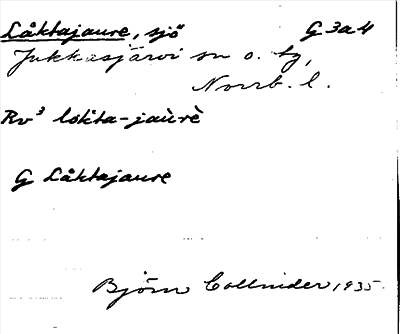 Låktajaure, sjö G 3a M
Jukkasjärvi sn o. tg,
Norrb. l.
Rv³ lokta-jaùrè
G Låktajaure
Björn Collinder 1935.